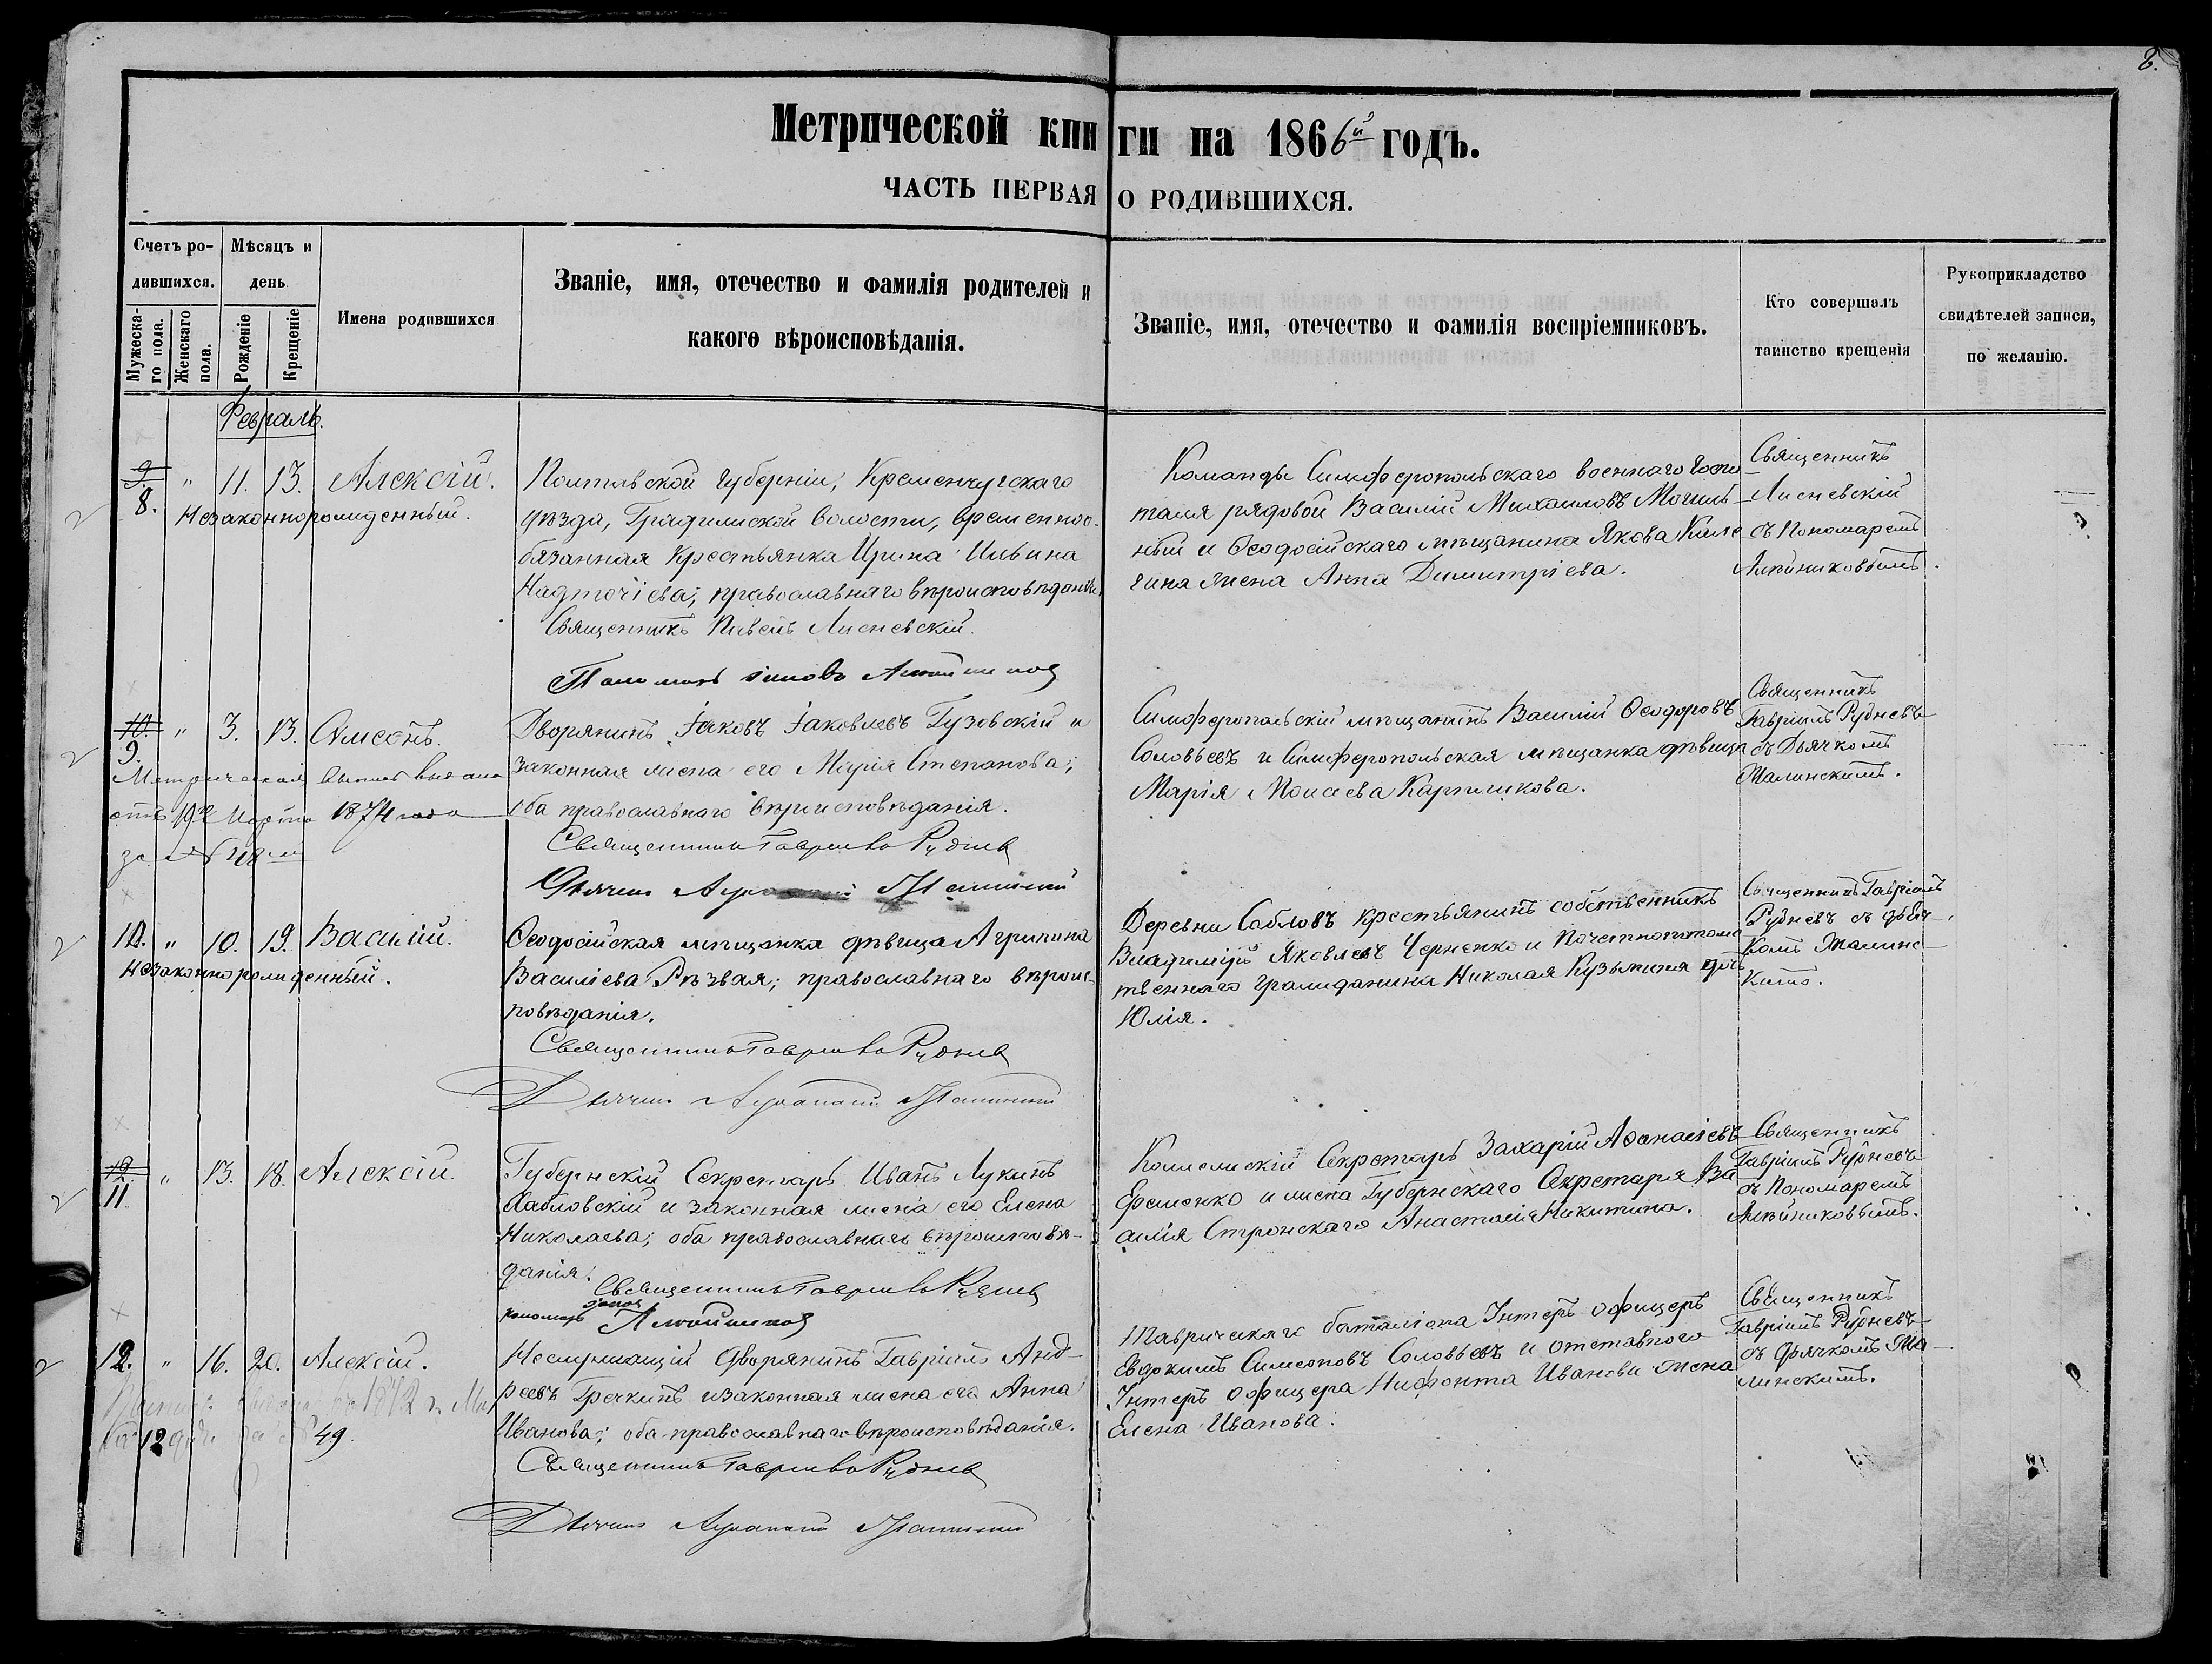 2.
Метрической книги на 1866й годъ.
ЧАСТЬ ПЕРВАЯ О РОДИВШИХСЯ.
Счетъ родившихся.
Мѣсяцъ и день
Мужескаго пола.
Женскаго пола.
Рожденіе
Крещеніе
Имена родившихся
Званіе, имя, отечество и фамилія родителей и
какого вѣроисповѣданія.
Званіе, имя, отечество и фамилія воспріемниковъ.
Кто совершалъ
таинство крещенія
Рукоприкладство
свидѣтелей записи,
по желанію.
Февраль.
9.
8. " 11. 13. Алексій.
Незаконнорожденный.
Полтавской губерніи, Кременчугскаго
уѣзда, Градижской волости, временноо-
бязанная крестьянка Ирина Ильина
Надточіева; православнаго вѣроисповѣданія.
Священникъ Лисневскій.
Команды Симферопольскаго военнаго госпи-
таля рядовой Василій Михаиловъ Могиль-
ный и Ѳеодосійскаго мѣщанина Якова
жена Анна Димитріева.
Священникъ
Лисневскій
съ Пономаремъ
10.
9. " 3. 13. Симеонъ.
Метрическая выпись выдана
отъ 19го Марта 1874 года
за № 48м
Дворянинъ Іаковъ Іаковлевъ Гузовскій и
законная жена его Марія Степанова;
оба православнаго вѣроисповѣданія.
Священникъ Гавріилъ Рудневъ
Дьячекъ
Симферопольскій мѣщанинъ Василій Ѳеодоровъ
Соловьевъ и Симферопольская мѣщанка дѣвица
Марія Моисеева
Священникъ
Гавріилъ Рудневъ
съ Дьячкомъ
10. " 10. 19. Василій.
Незаконнорожденный.
Ѳеодосійская мѣщанка дѣвица Агрипина
Василіева Рѣзвая; православнаго вѣроис-
повѣданія.
Священникъ Гавріилъ Рудневъ
Дьячекъ
Деревни Сабловъ крестьянинъ собственникъ
Владимиръ Яковлевъ Черненко и Почетнопотомс
твеннаго гражданина Николая Кузьмина дочь
Юлія.
Священникъ Гавріилъ
Рудневъ съ дьяч-
комъ
12.
11 " 13. 18. Алексій.
Губернскій Секретарь Иванъ Лукинъ
и законная жена его Елена
Николаева; оба православнаго вѣроисповѣ-
данія.
Священникъ Гавріилъ Рудневъ
пономарь
Коллежскій Секретарь Захарій Аѳанасіевъ
Ефеменко и жена Губернскаго Секретаря Ва
силія Стронскаго Анастасія Никитина.
Священникъ
Гавріилъ Рудневъ
съ Пономаремъ
12. " 16. 20. Алексій.
1872 г.
12 49.
Неслужащій Дворянинъ Гавріилъ Анд-
реевъ Гречкинъ и законная жена его Анна
Иванова; оба православнаго вѣроисповѣданія.
Священникъ Гавріилъ Рудневъ
Дьячекъ
Таврическаго баталіона Унтеръ офицеръ
Евдокимъ Симеоновъ Соловьевъ и отставного
Унтеръ офицера Нифонта Иванова жена
Елена Иванова.
Священникъ
Гавріилъ Рудневъ
съ дьячкомъ